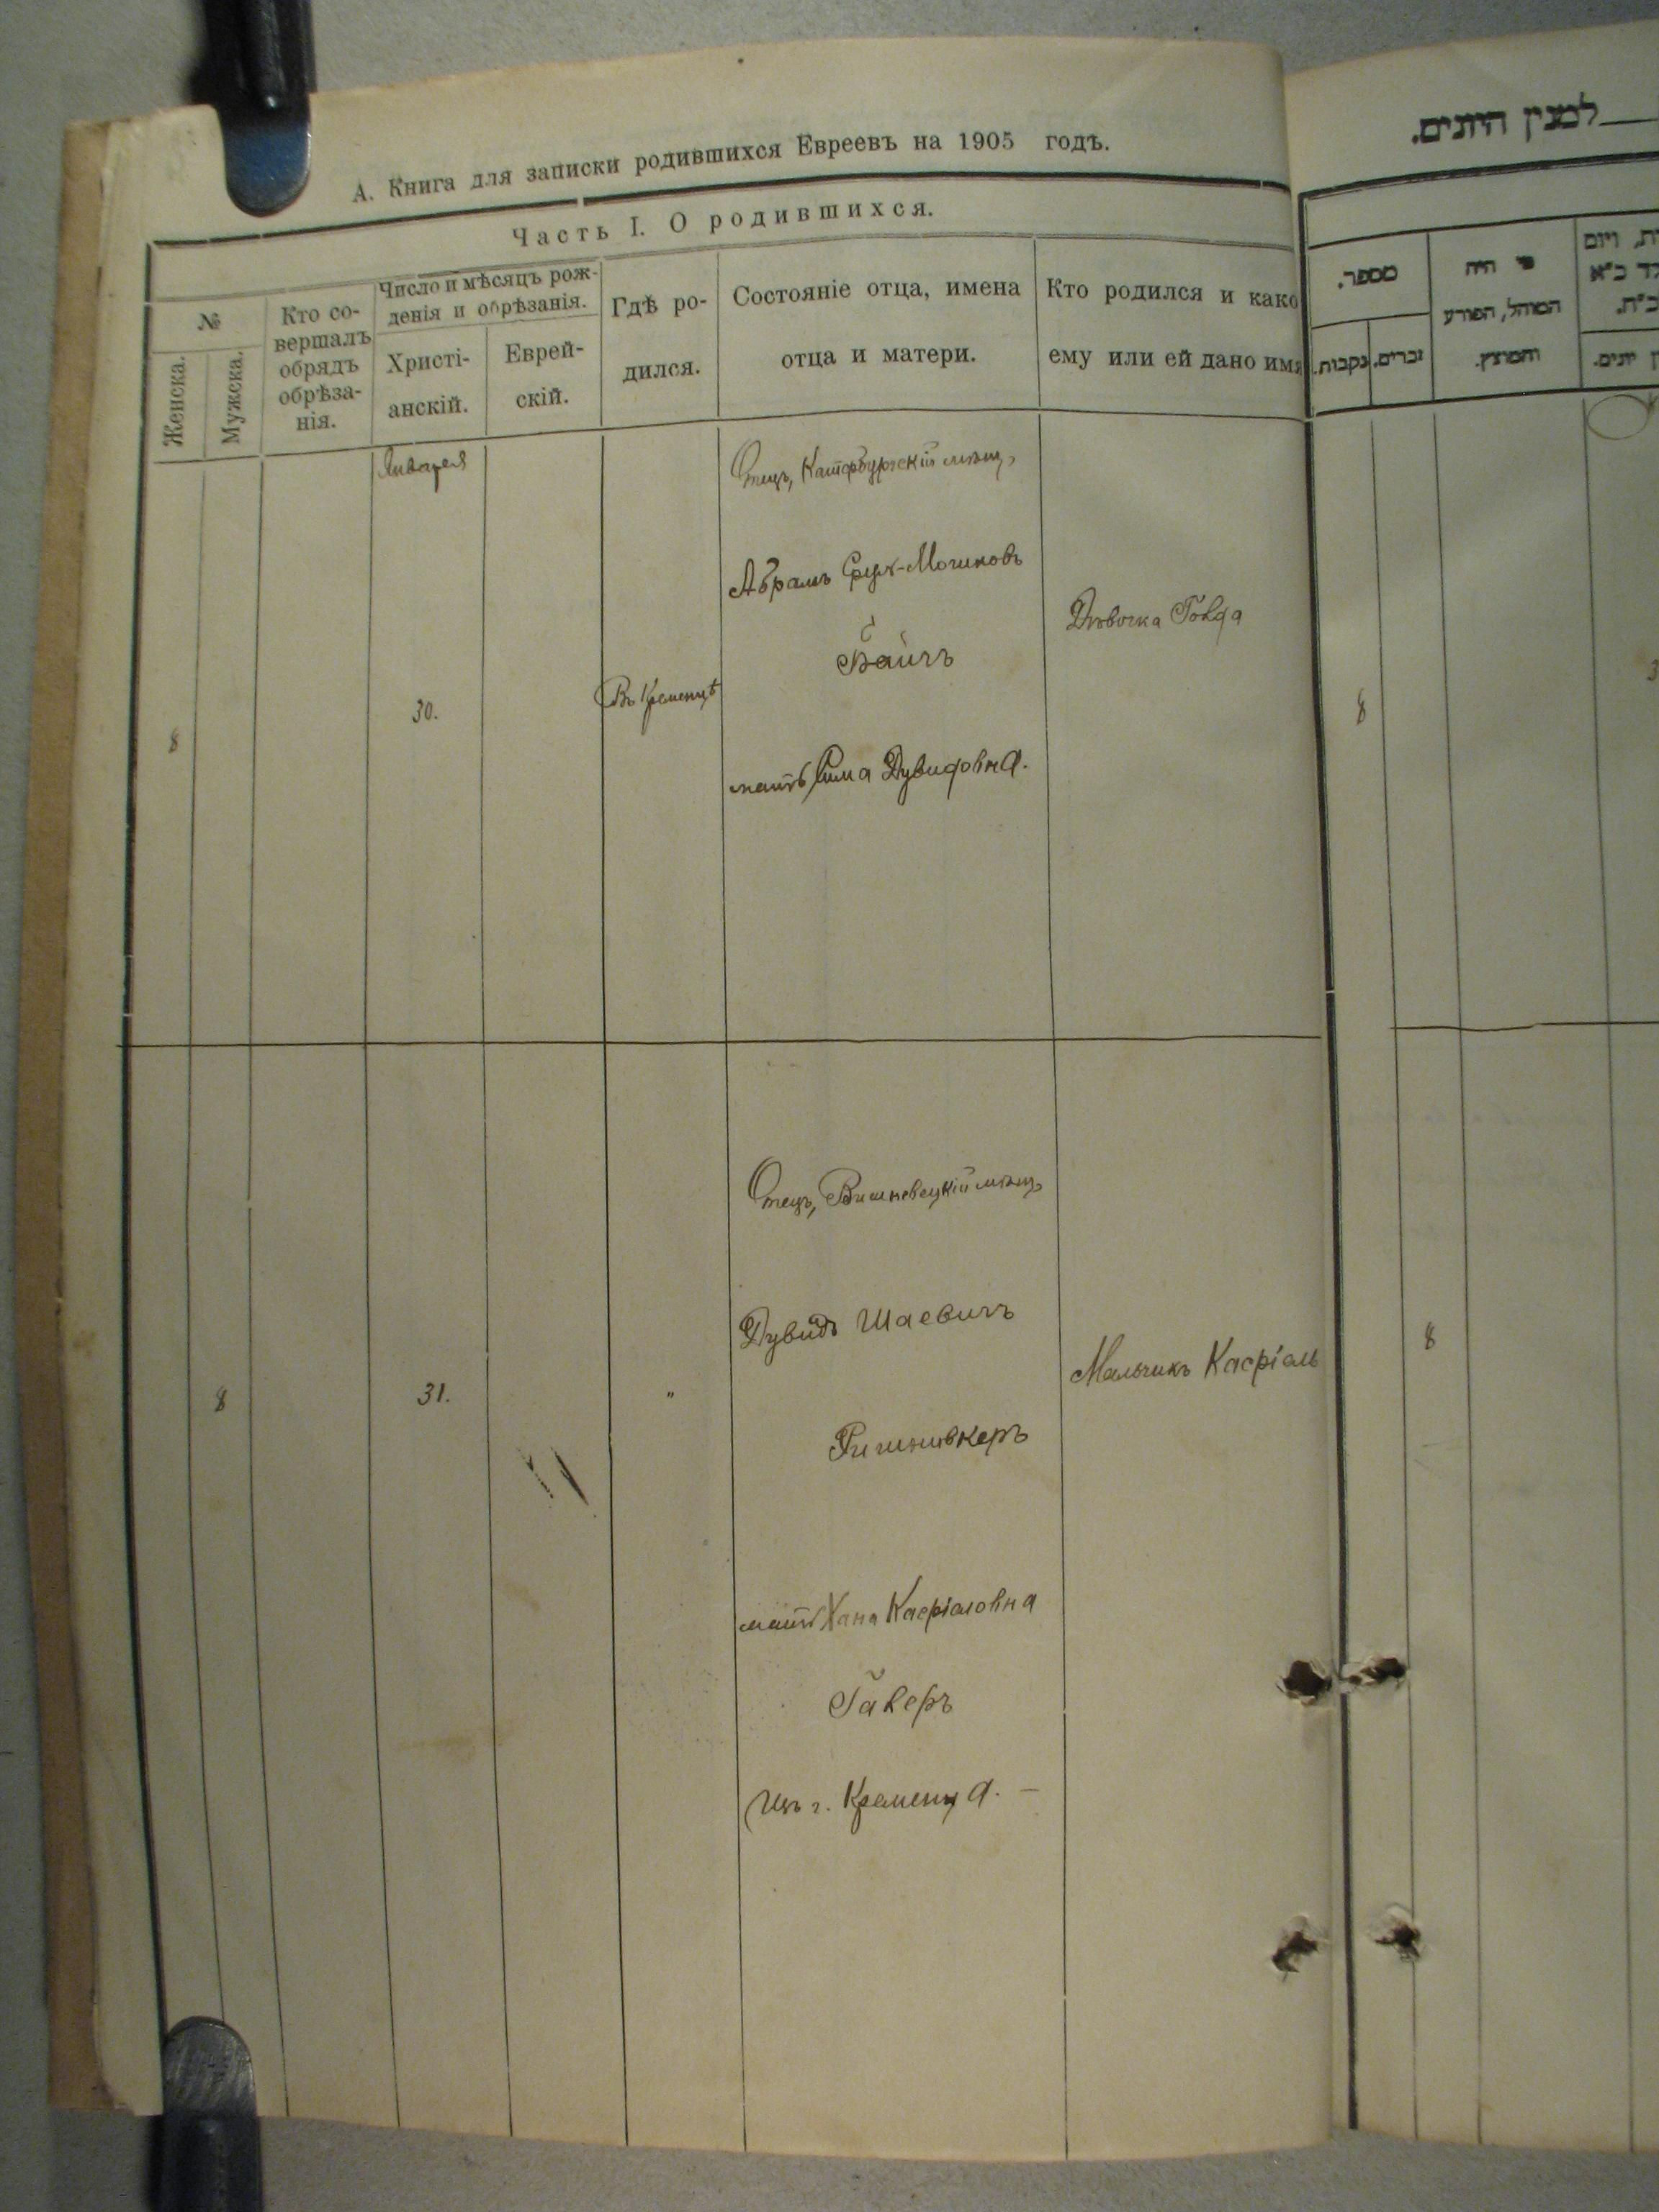 А. Книга для записки родившихся Евреевъ на 1905 годъ.
Часть I. О родившихся.
№
Женска.
Мужска.
Кто со-
вершалъ
обрядъ
обрѣза-
нія.
Число и мѣсяцъ рож-
денія и обрѣзанія.
Христі-
анскій.
Еврей-
скій.
Гдѣ ро-
дился.
Состояніе отца, имена
отца и матери.
Кто родился и како
ему или ей дано имя
Января
8
30.
Въ Кременцѣ
Отецъ, Катербургскій мѣщ.
Абрамъ
Байчъ
мать Сима Дувидовна.
Дѣвочка Голда
8
31.
"
Отецъ, Вишневецкій мѣщ.
Дувидъ Шаевичъ
мать Хана Касріаловна
Гаверъ
Изъ г. Кременца. —
Мальчикъ Касріаль
למנין היונים.
מספר.
נקבות.
זכרים.
מי היה
המוהל, הפורע
והמוצץ.
8
8